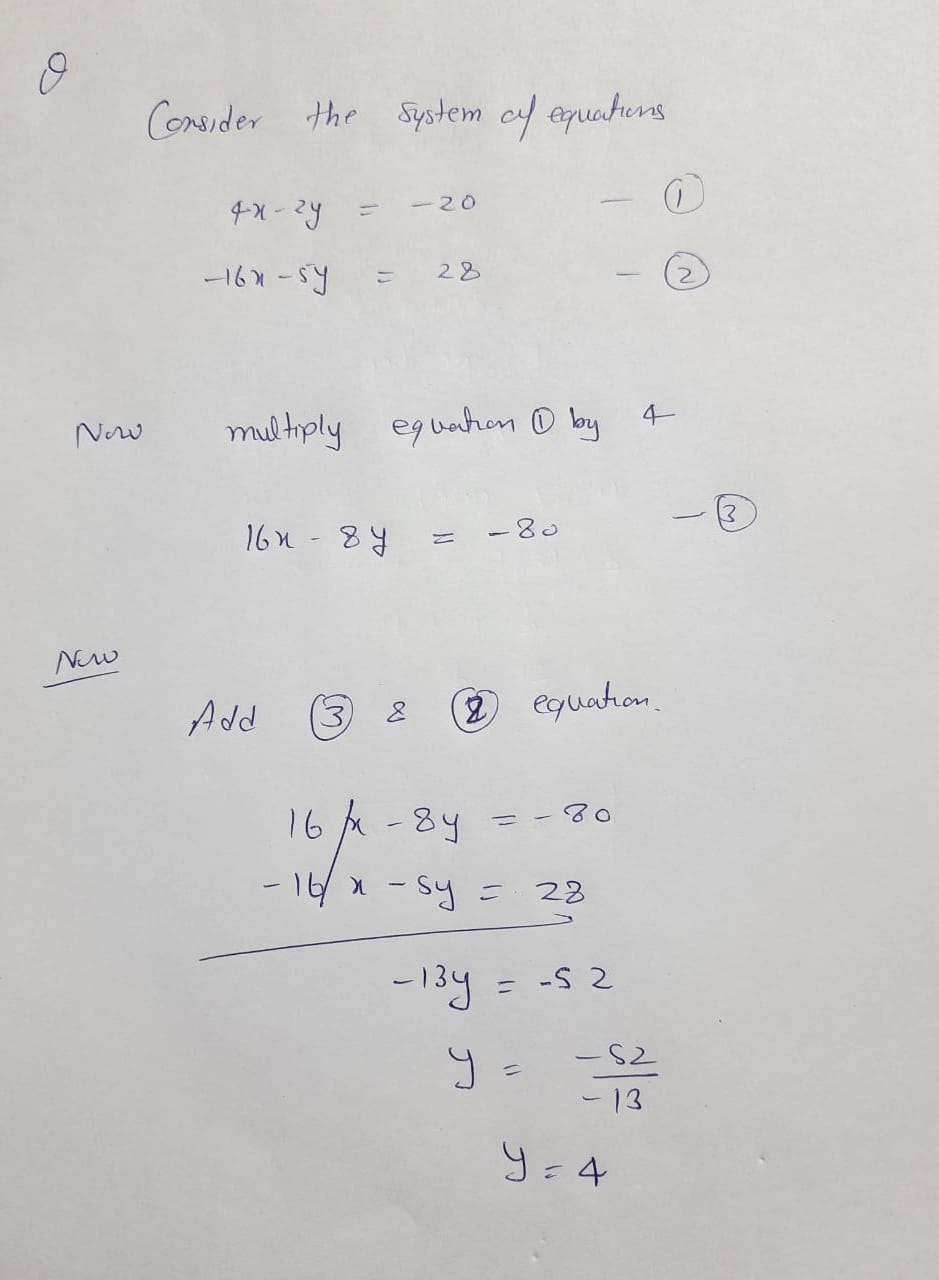 Q
Consider the system of equations
4x - 2y = -20 - ①
-16x - 5y = 28 - ②
Now multiply equation ① by 4
16x - 8y = -80 - ③
Now
Add ③ & ② equation.
16x - 8y = -80
-16x - 5y = 28
-13y = -52
y = -52/-13
y = 4